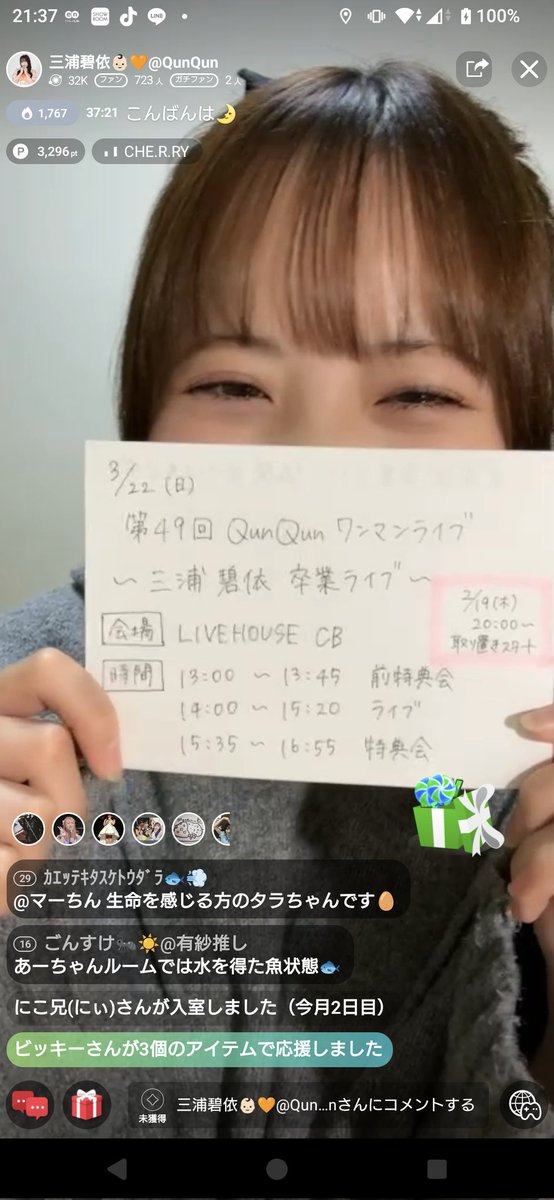 21:37
100%
三浦碧依👶🏻🧡@QunQun
32K ファン 723人 ガチファン 2人
1,767 37:21 こんばんは🌛
P 3,296pt CHE.R.RY
3/22(日)
第49回 QunQun ワンマンライブ
～三浦碧依 卒業ライブ～
2/19(木)
20:00～
取り置きスタート
会場 LIVEHOUSE CB
時間 13:00 ～ 13:45 前特典会
14:00 ～ 15:20 ライブ
15:35 ～ 16:55 特典会
29 ｶｴｯﾃｷﾀｽｹﾄｳﾀﾞﾗ🐟💨
@マーちん 生命を感じる方のタラちゃんです🥚
16 ごんすけ🐜☀️@有紗推し
あーちゃんルームでは水を得た魚状態🐟
にこ兄(にぃ)さんが入室しました（今月2日目）
ビッキーさんが3個のアイテムで応援しました
未獲得
三浦碧依👶🏻🧡@Qun...nさんにコメントする